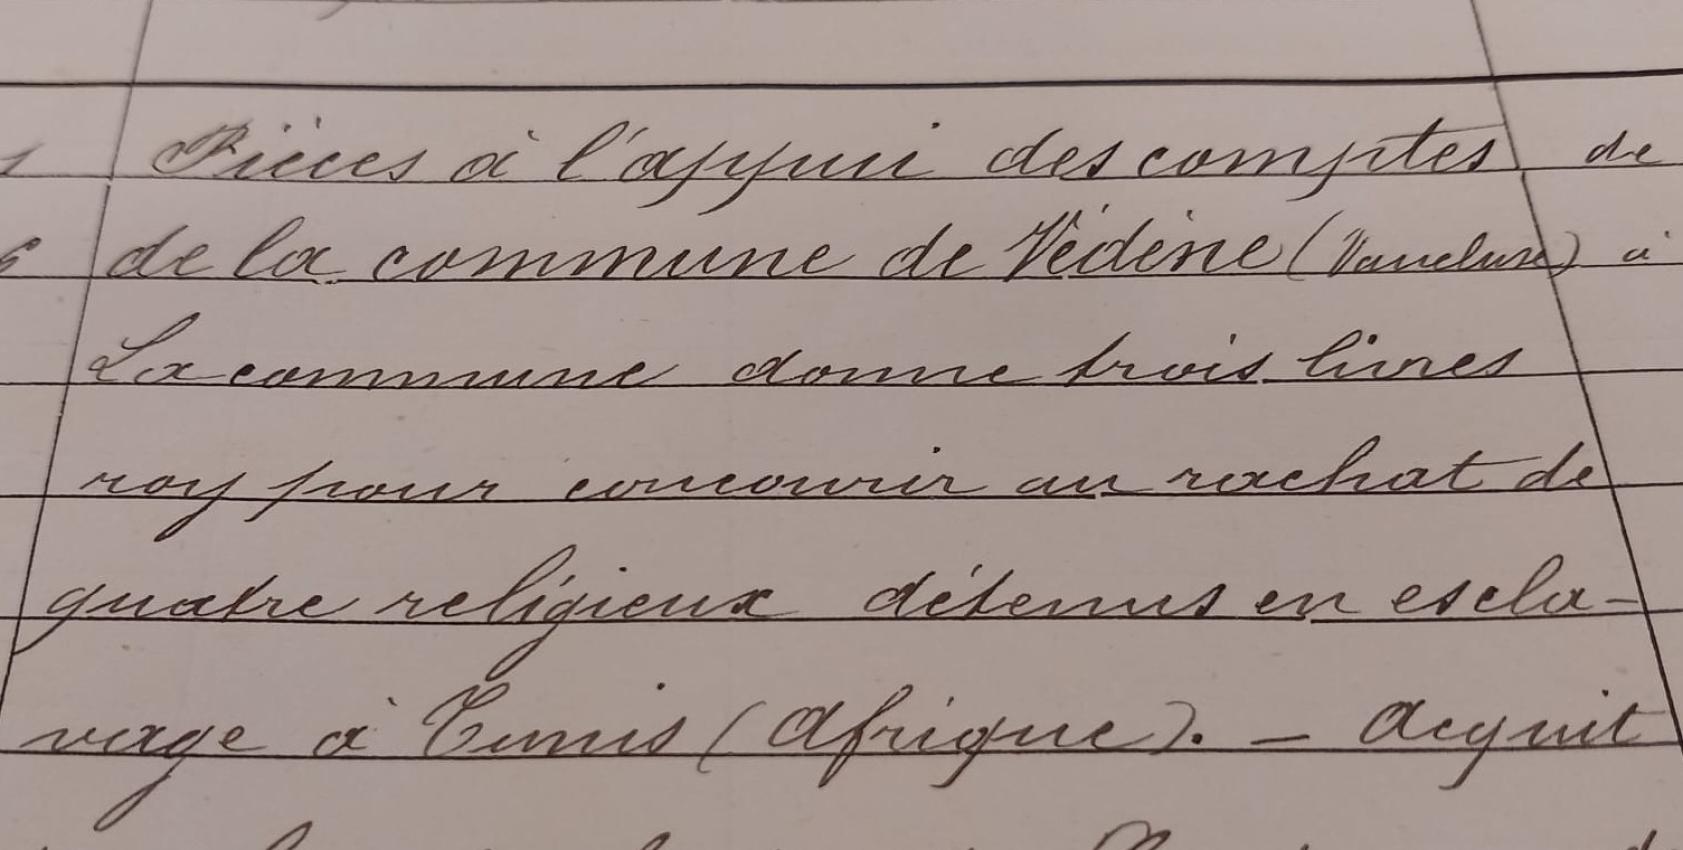 Pièces à l'appui des comptes de
de la commune de Védène (Vaucluse) à
La commune donne trois livres
roy pour concourir au rachat de
quatre religieux détenus en escla-
vage à Tunis (Afrique). — Acquit